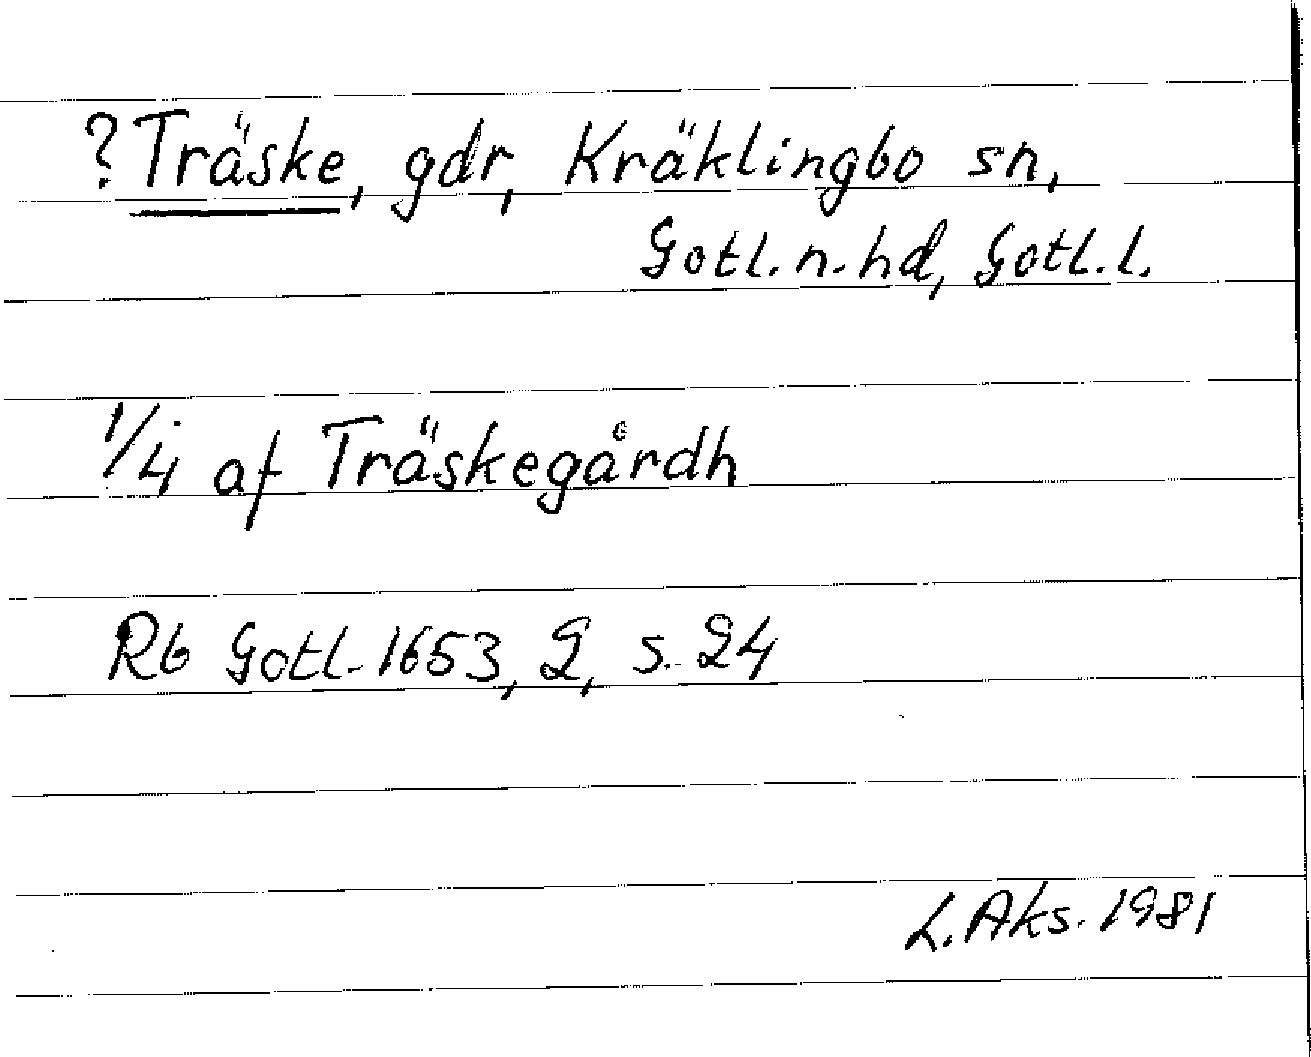 ?Träske, gdr, Kräklingbo sn,
Gotl. n. hd, Gotl. l.
1/4 af Träskegårdh
Rb Gotl. 1653, 2, s. 24
L. Aks. 1981